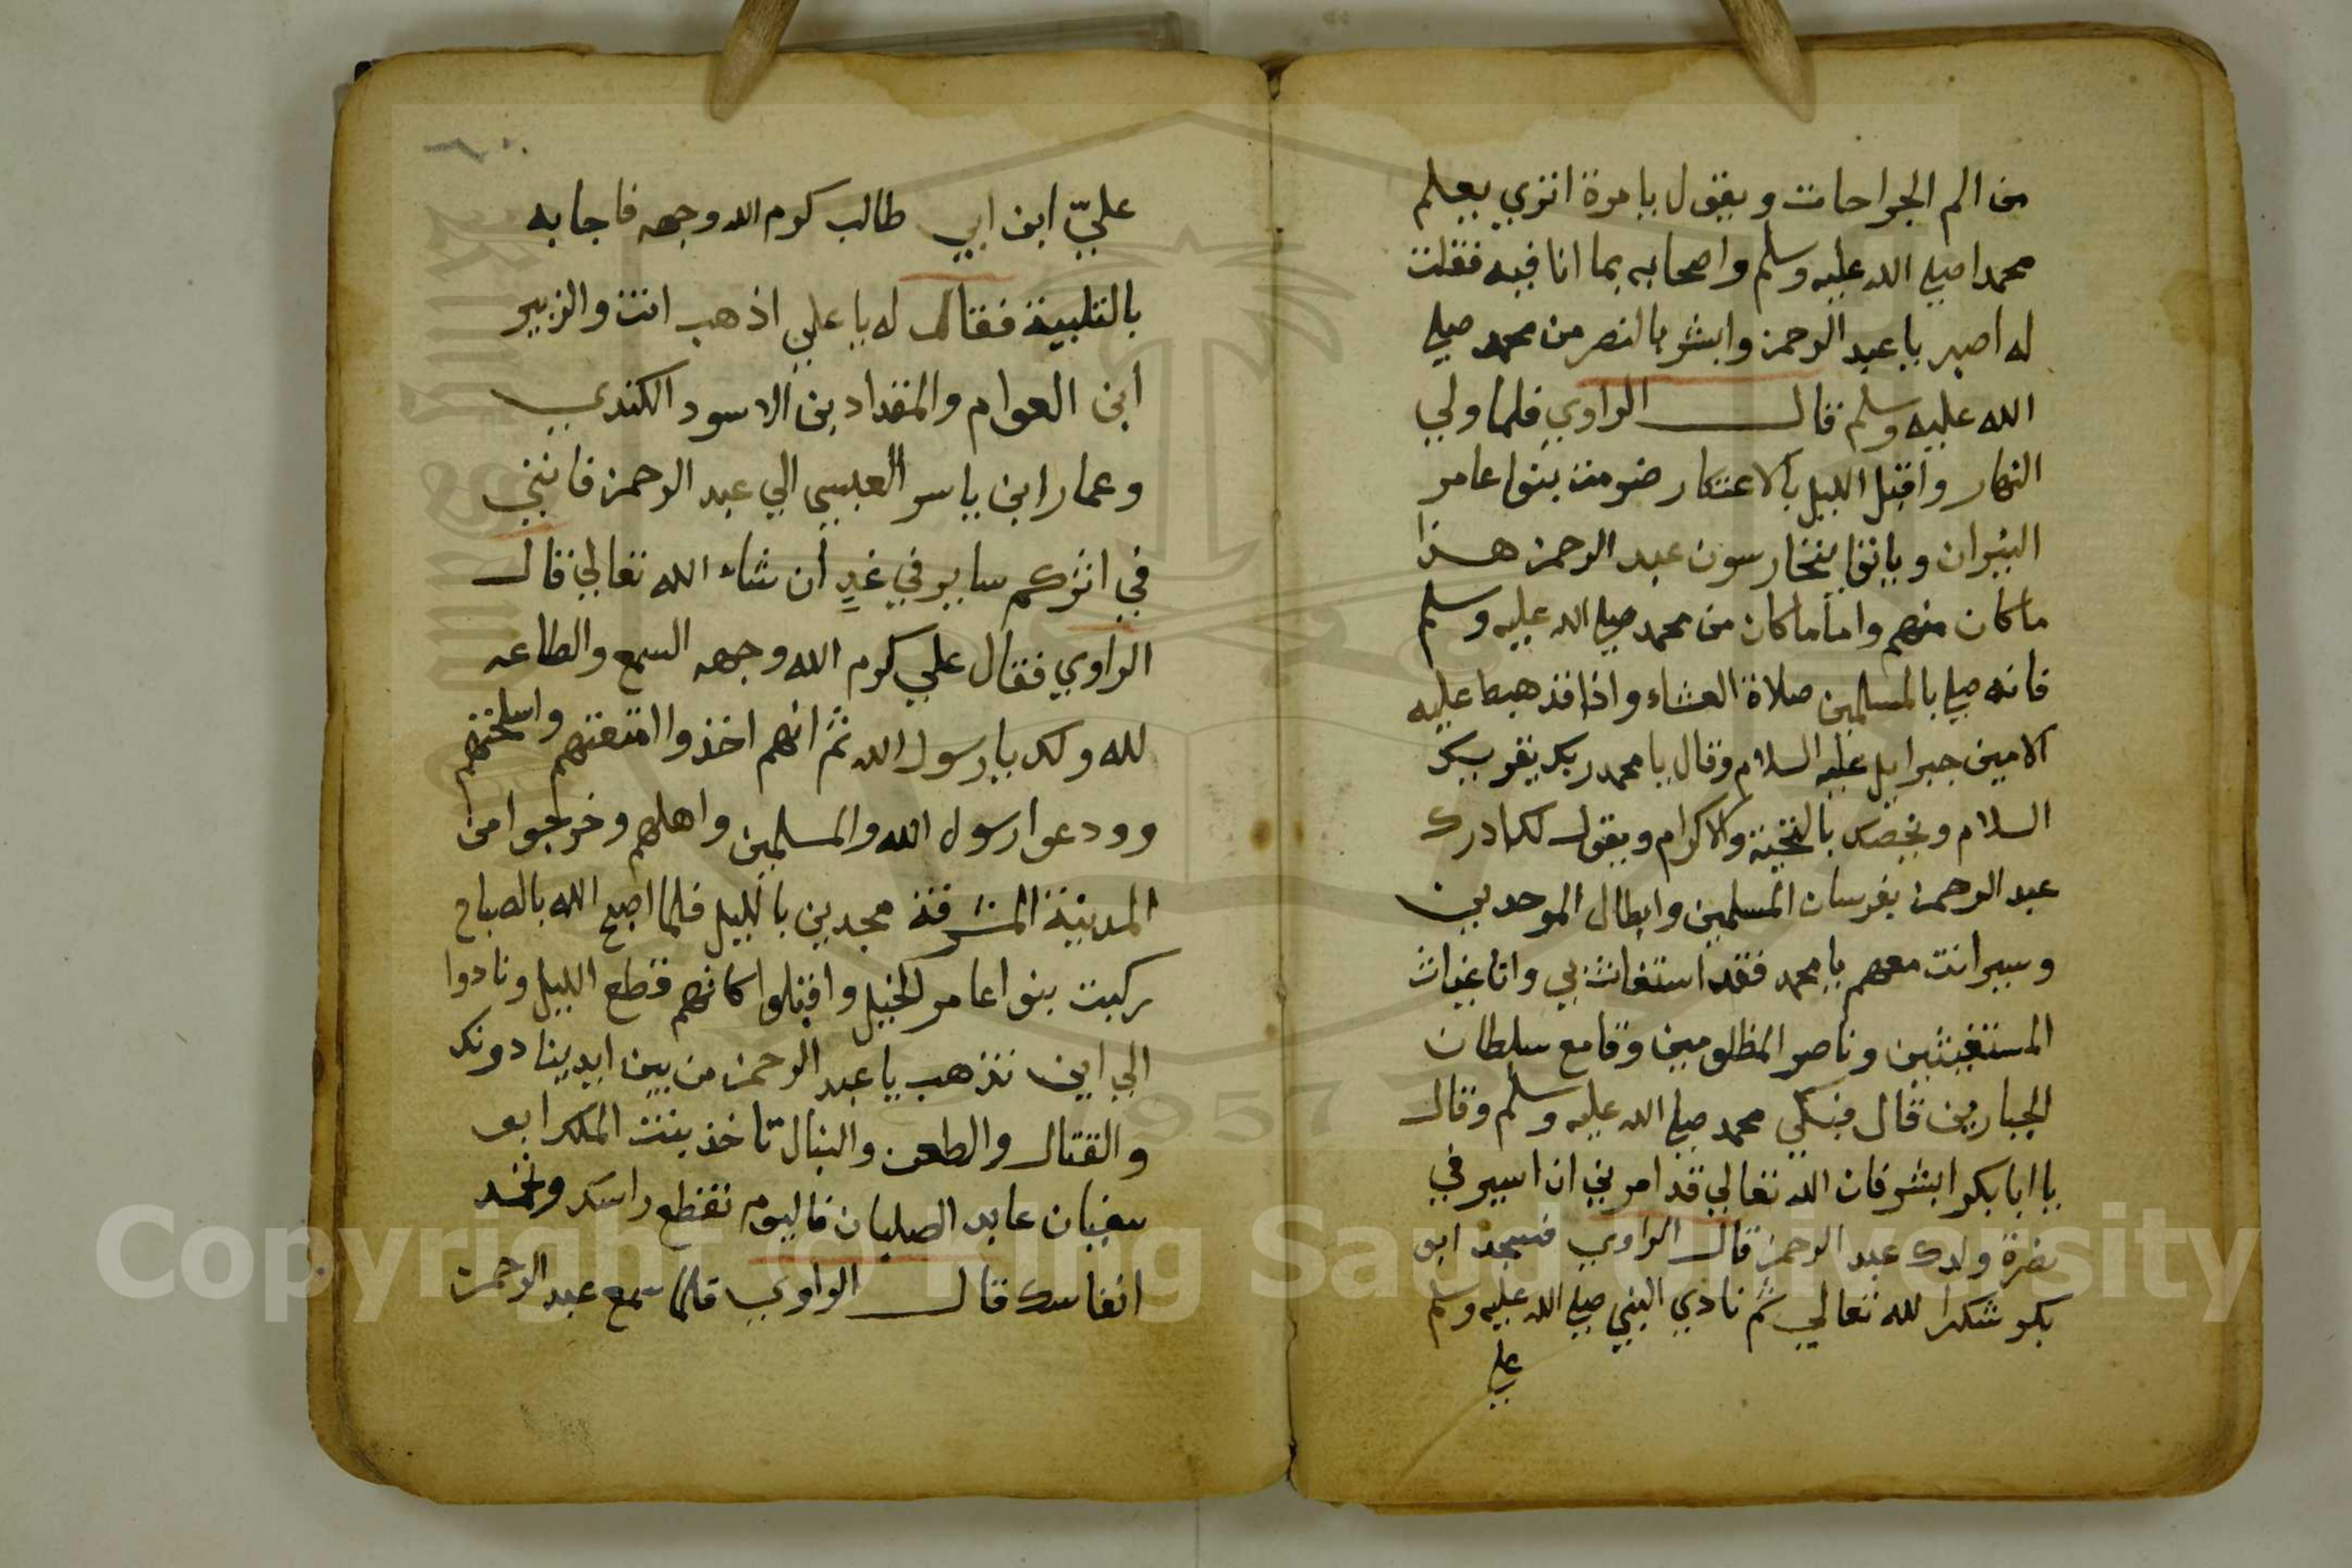 من الم الجراحات ويقول يا مرة اتري يعلم
محمدا صلي الله عليه وسلم واصحابه بما انا فيه فقلت
له اصبر يا عبد الرحمن وابشر بالنصر من محمد صلي
الله عليه وسلم قال الراوي فلما ولي
النهار واقبل الليل بالاعتكار ضرمت بنوا عامر
النيران وباتوا يتحارسون عبد الرحمن هذا
ما كان منهم واما ما كان من محمد صلي الله عليه وسلم
فانه صلي بالمسلمين صلاة العشاء واذا قد هبط عليه
الامين جبرايل عليه السلام وقال يا محمد ربك يقريك
السلام ويخصك بالتحية والاكرام ويقول لك ادرك
عبد الرحمن بفرسان المسلمين وابطال الموحدين
وسير انت معهم يا محمد فقد استغاث بي وانا غياث
المستغيثين وناصر المظلومين وقامع سلطان
الجبارين قال فبكي محمد صلي الله عليه وسلم وقال
يا ابا بكر ابشر فان الله تعالي قد امرني ان اسير في
نصرة ولدك عبد الرحمن قال الراوي فسجد ابو
بكر شكرا لله تعالي ثم نادي النبي صلي الله عليه وسلم
علي
٦٠
عليّ ابن ابي طالب كرم الله وجهه فاجابه
بالتلبية فقال له يا علي اذهب انت والزبير
ابن العوام والمقداد بن الاسود الكندي
وعمار ابن ياسر العبسي الي عبد الرحمن فانني
في اثركم ساير في غدٍ ان شاء الله تعالي قال
الراوي فقال علي كرم الله وجهه السمع والطاعه
لله ولك يا رسول الله ثم انهم اخذوا امتعتهم واسلحتهم
وودعوا رسول الله والمسلمين واهلهم وخرجوا من
المدينة المشرفة مجدين بالليل فلما اصبح الله بالصباح
ركبت بنوا عامر الخيل واقبلوا كانهم قطع الليل ونادوا
الي اين تذهب يا عبد الرحمن من بين ايدينا دونك
والقتال والطعن والنبال تاخذ بنت الملك ابو
سفيان عابد الصلبان فاليوم نقطع راسك ونخمد
انفاسك قال الراوي فلما سمع عبد الرحمن
Copyright © King Saud University
1957